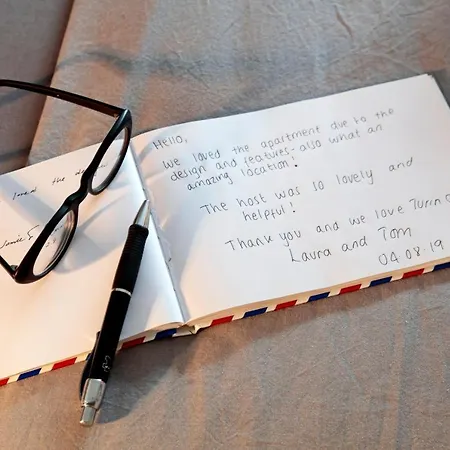 loved the
Hello,
We loved the apartment due to the
design and features - also what an
amazing location!
The host was so lovely and
helpful!
Thank you and we love Turin
Laura and Tom
04.08.19